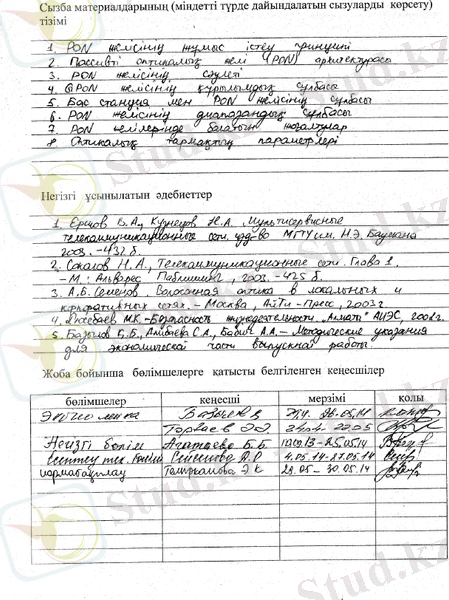 Сызба материалдарының (міндетті түрде дайындалатын сызуларды көрсету)
тізімі
1. PON желісінің жұмыс істеу принципі
2. Пассивті оптикалық желі (PON) архитектурасы
3. PON желісінің сәулеті
4. GPON желісінің құрылымдық сұлбасы
5. Бас станция мен PON желісінің сұлбасы
6. PON желісінің диапазондық сұлбасы
7. PON желілерінде болатын жоғалтулар
8. Оптикалық тармақтың параметрлері
Негізгі ұсынылатын әдебиеттер
1. Ершов В.А., Кузнецов Н.А. Мультисервисные
телекоммуникационные сети. изд-во МГТУ им. Н.Э. Баумана
2003. - 432 б.
2. Соколов Н.А., Телекоммуникационные сети. Глава 1.
- М.: Альварес Паблишинг, 2003. - 425 б.
3. А.Б. Семенов Волоконная оптика в локальных и
корпоративных сетях. - Москва, АйТи - Пресс, 2003 г.
4. М.К. - Безопасность жизнедеятельности. Алматы: АИЭС,
5. Базылов Қ.Б., Алибаева С.А., Бабич А.А. - Методические указания
для экономической части выпускной работы.
Жоба бойынша бөлімшелерге қатысты белгіленген кеңесшілер
бөлімшелер кеңесші мерзімі қолы
Экономика
Негізгі бөлім Б.Б.
4.05.14-27.05.14
Э.К 28.05 - 30.05.14
Stud.kz
Stud.kz
Stud.kz
Stud.kz